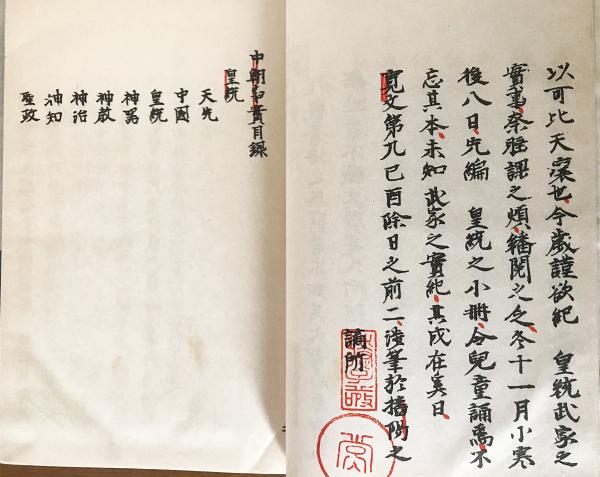 以可比天壤也、今歲謹欲紀　皇統武家之
實事、奈睡課之煩、繙閱之乏、冬十一月小寒
後八日、先編　皇統之小冊、令兒童誦焉、不
忘其本、未知武家之實紀、其成在奚日、
寬文第九己酉除日之前二、涉筆於播陽之
謫所
中朝事實目錄
皇統
天先
中國
皇統
神器
神教
神治
神知
聖政